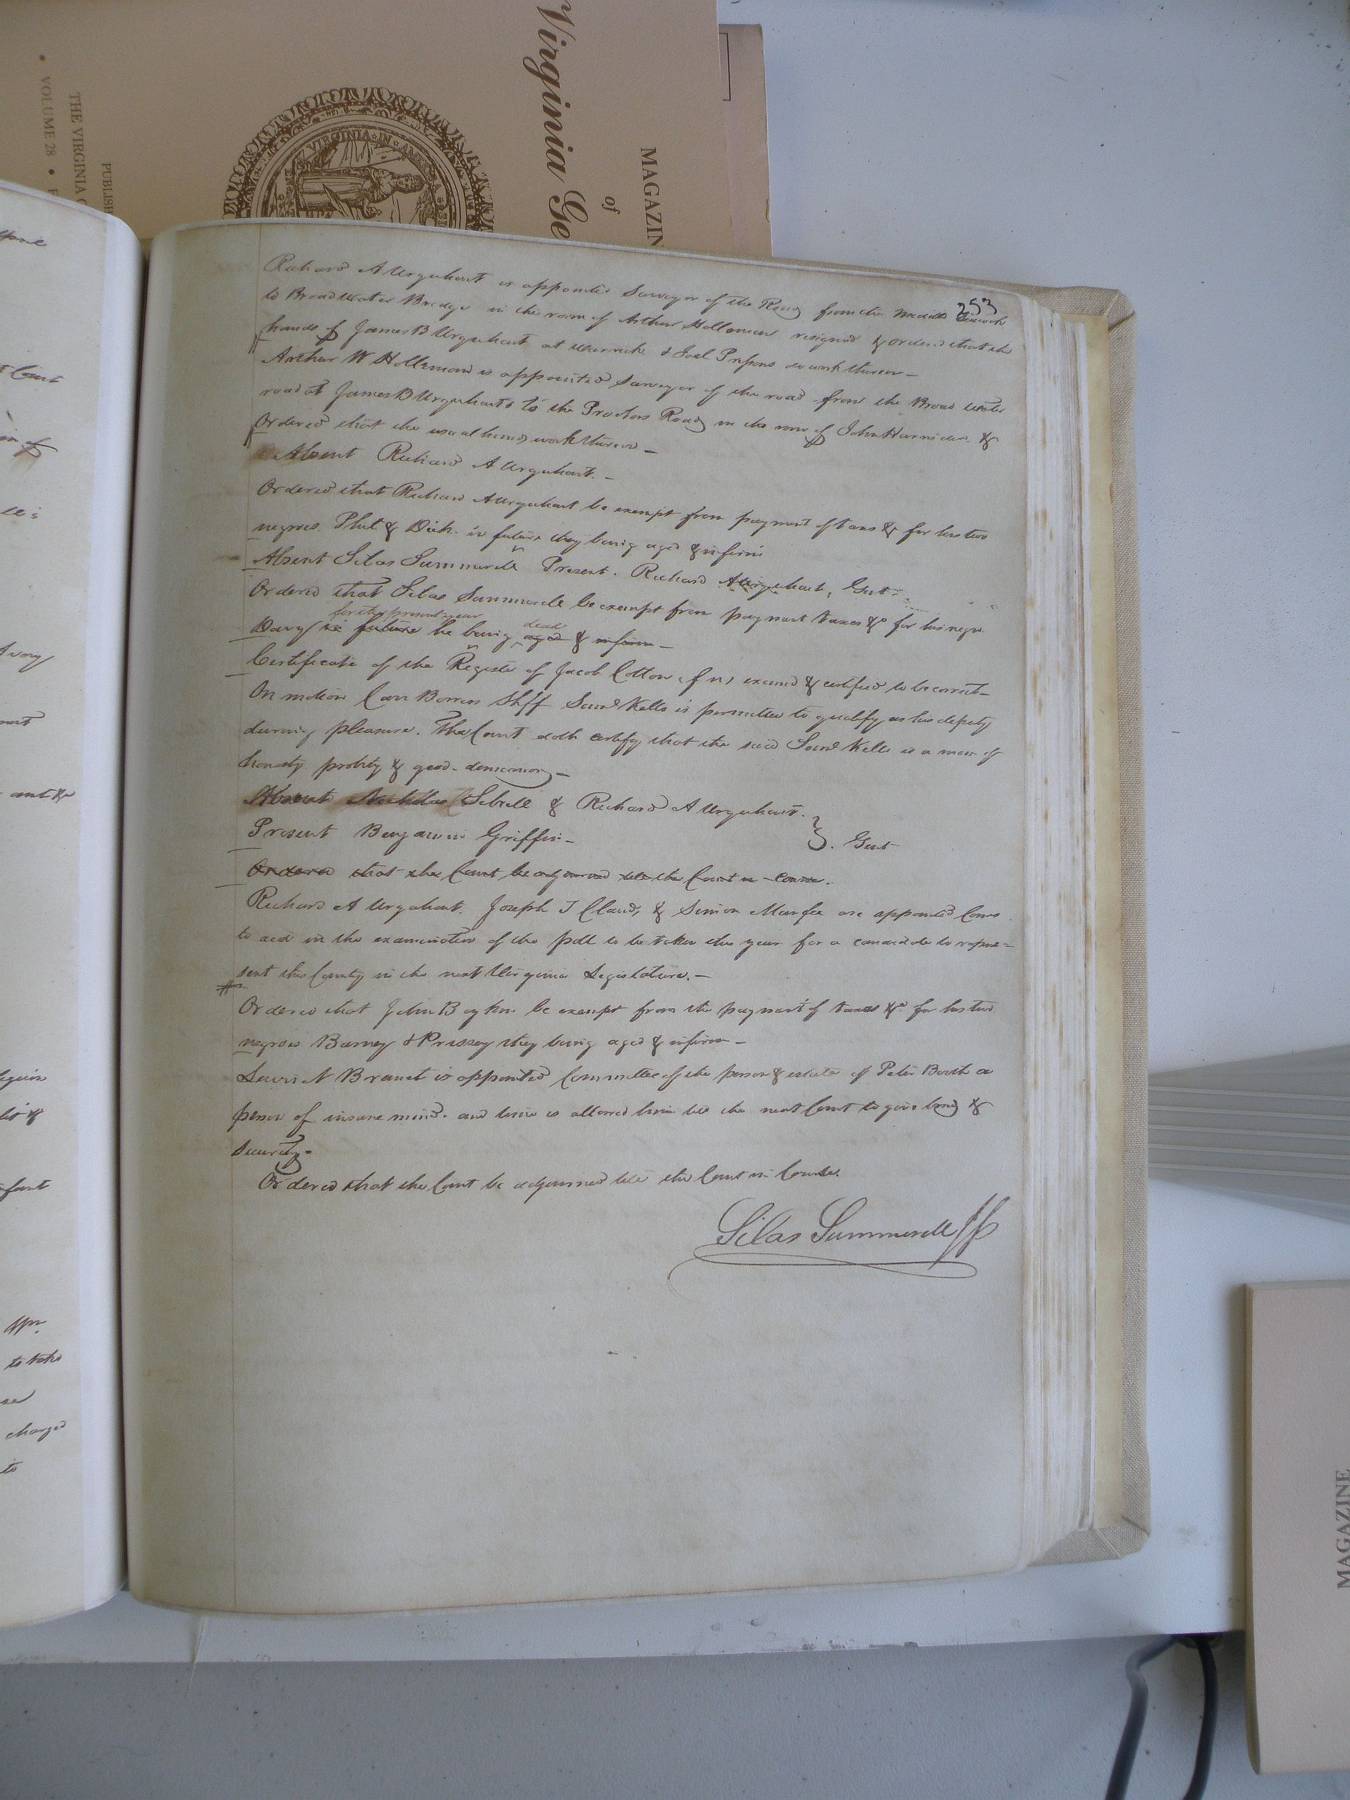 Virginia Ge
of
MAGAZIN
PUBLISH
THE VIRGINIA
VOLUME 28
VIRGINIA IN
253
Richard A Urquhart is appointed Surveyor of the Road from the
to Broadwater Bridge in the room of Arthur Holleman resigned & ordered that the
hands of James B Urquhart at Warrick & Joel work thereon –
Arthur W Holleman is appointed Surveyor of the road from the Broad Water
road at James B Urquharts to the Proctors Road in the room of John &
Ordered that the usual hands work thereon –
Absent Richard A Urquhart. –
Ordered that Richard A Urquhart be exempt from payment of taxes &c for his two
negroes Phil & Dick in future they being aged & infirm
Absent Silas Summerell Present. Richard A Urquhart, Gent
Ordered that Silas Summerell be exempt from payment taxes &c for his negro
for the present year dead
Davy in future he being aged & infirm –
Certificate of the Register of Jacob Cotton (f n) examd & certified to be correct –
On motion Carr Bowers Shff Saml Kello is permitted to qualify as his deputy
during pleasure. The Court doth certify that the said Saml Kello is a man of
honesty probity & good demeanor –
Absent Nicholas Sebrell & Richard A Urquhart.
Present Benjamin Griffin – Gent
Ordered that the Court be adjourned till the Court in course.
Richard A Urquhart, Joseph T Claud, & Simon Murfee are appointed Coms
to aid in the examination of the poll to be taken this year for a candidate to repre=
sent this County in the next Virginia Legislature. –
Ordered that John Boykin be exempt from the payment of taxes &c for his two
negroes Barney & Prissey they being aged & infirm –
Lewis N Branch is appointed Committee of the person & estate of Peter Booth a
person of insane mind. and time is allowed him till the next Court to give bond &
security –
Ordered that the Court be adjourned till the Court in Course.
Silas Summerell
charged
to take
MAGAZINE